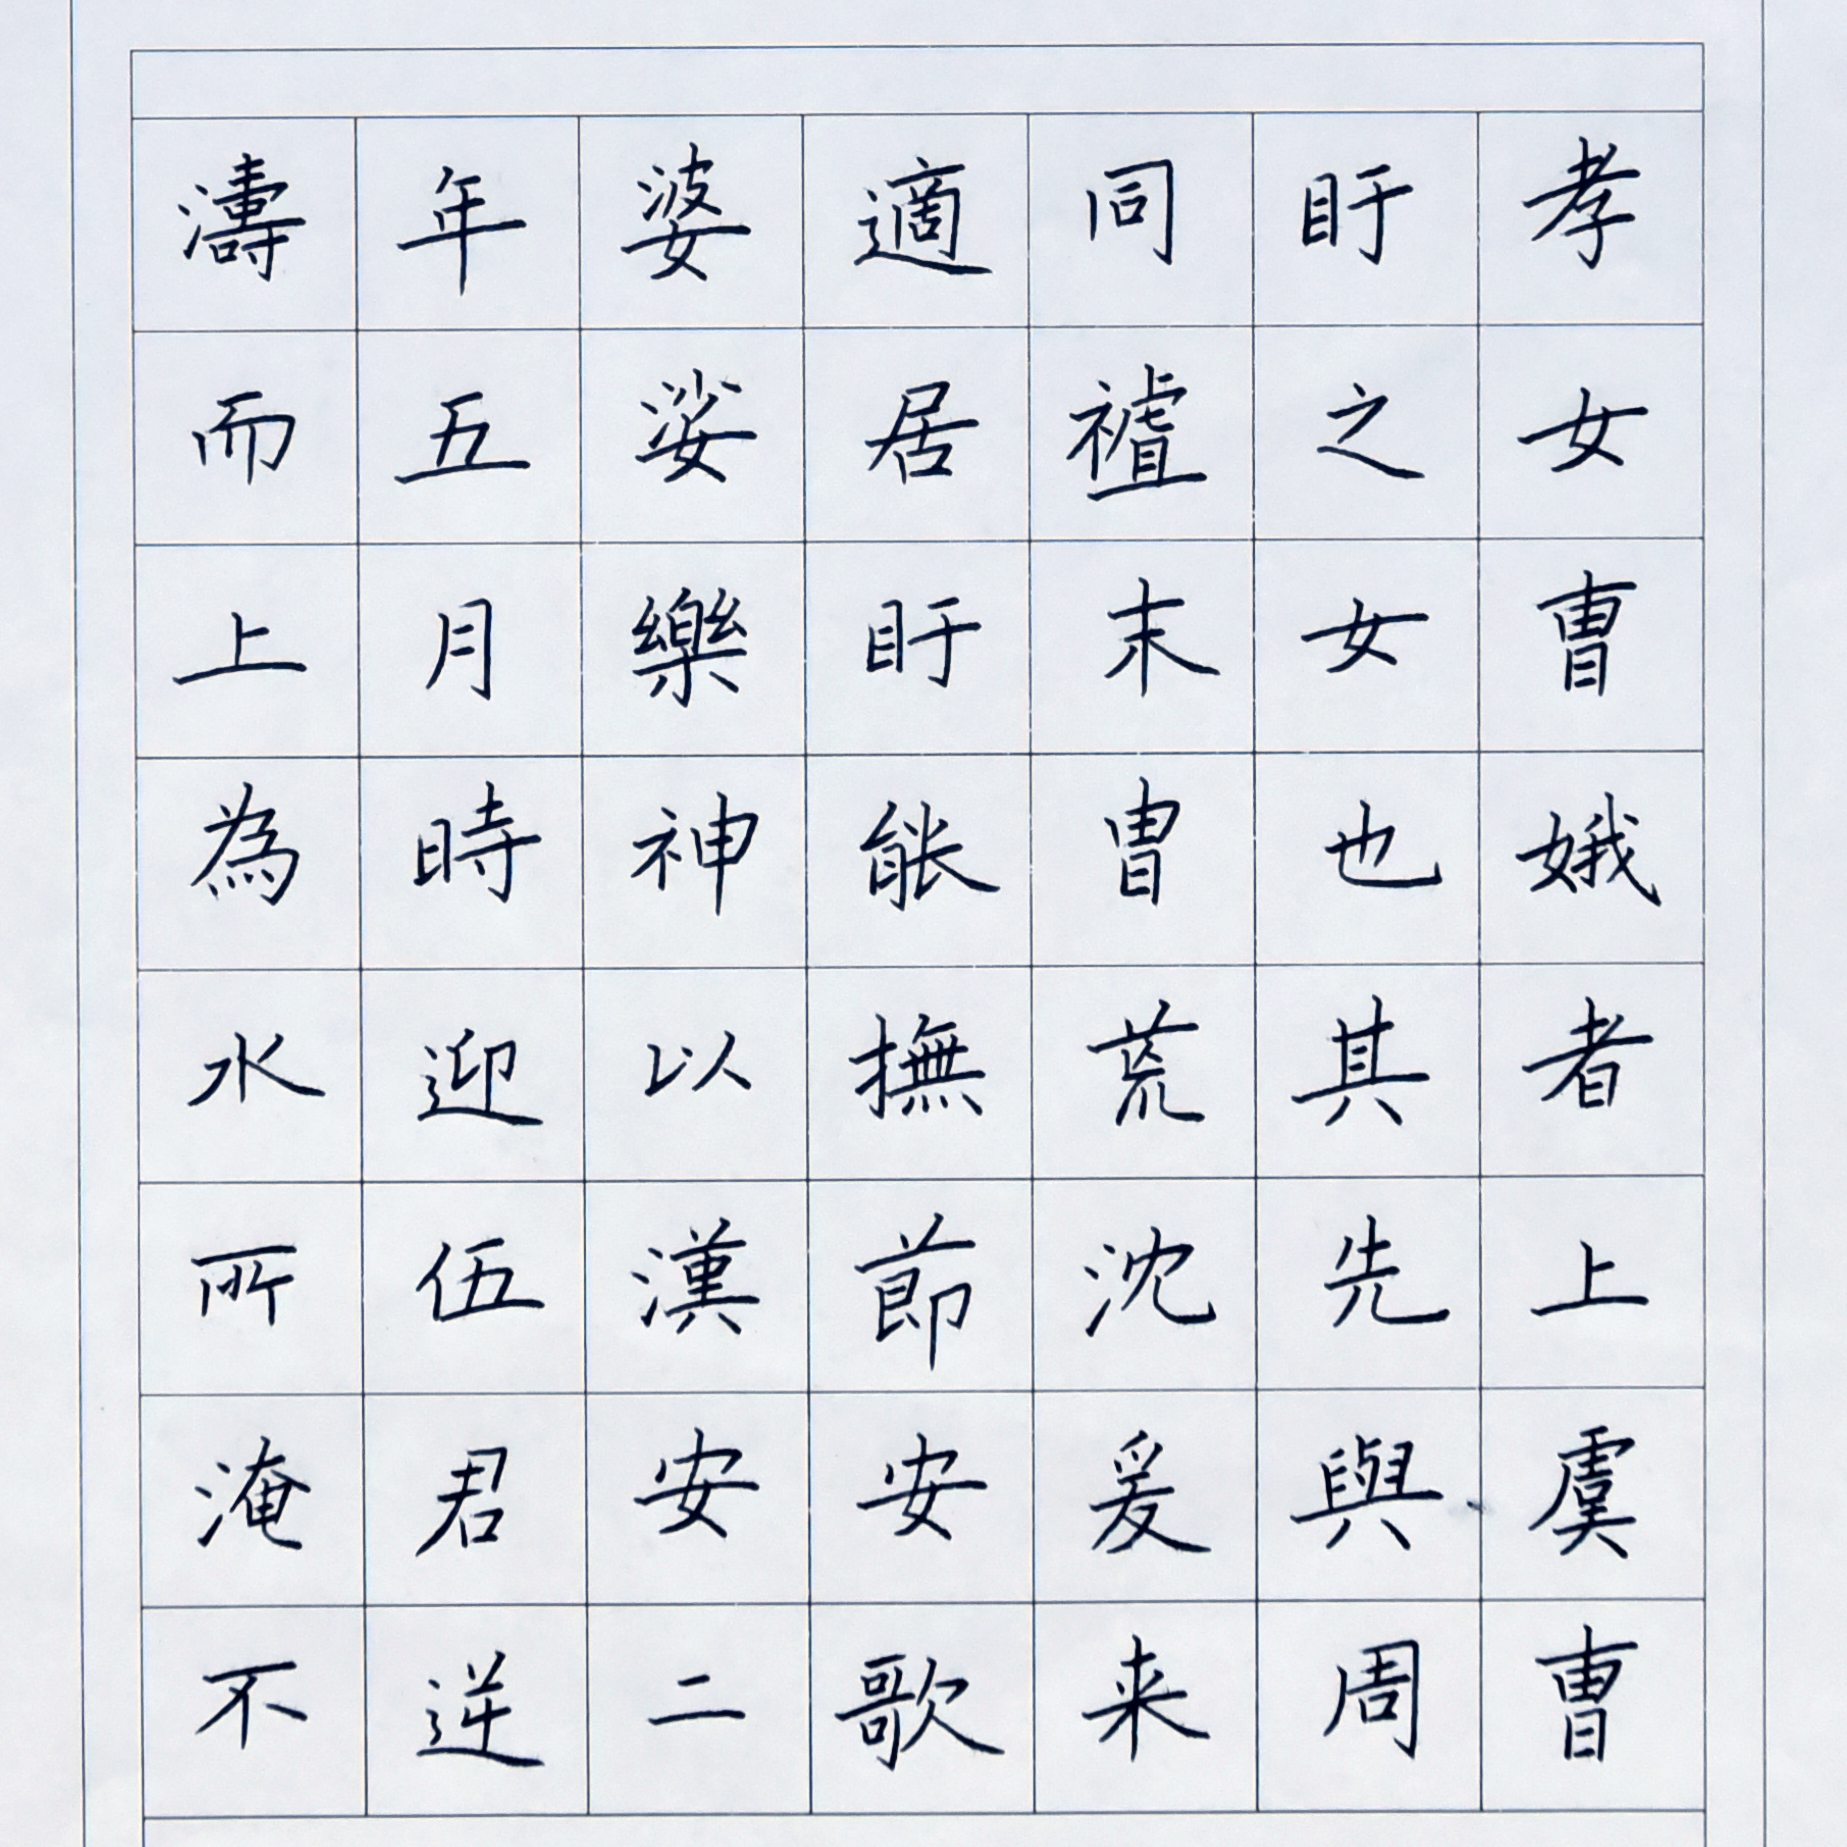 孝女曺娥者上虞曺
盱之女也其先與周
同末冑荒沈爰来
適居盱能撫節安歌
婆娑樂神以漢安二
年五月時迎伍君逆
濤而上為水所淹不